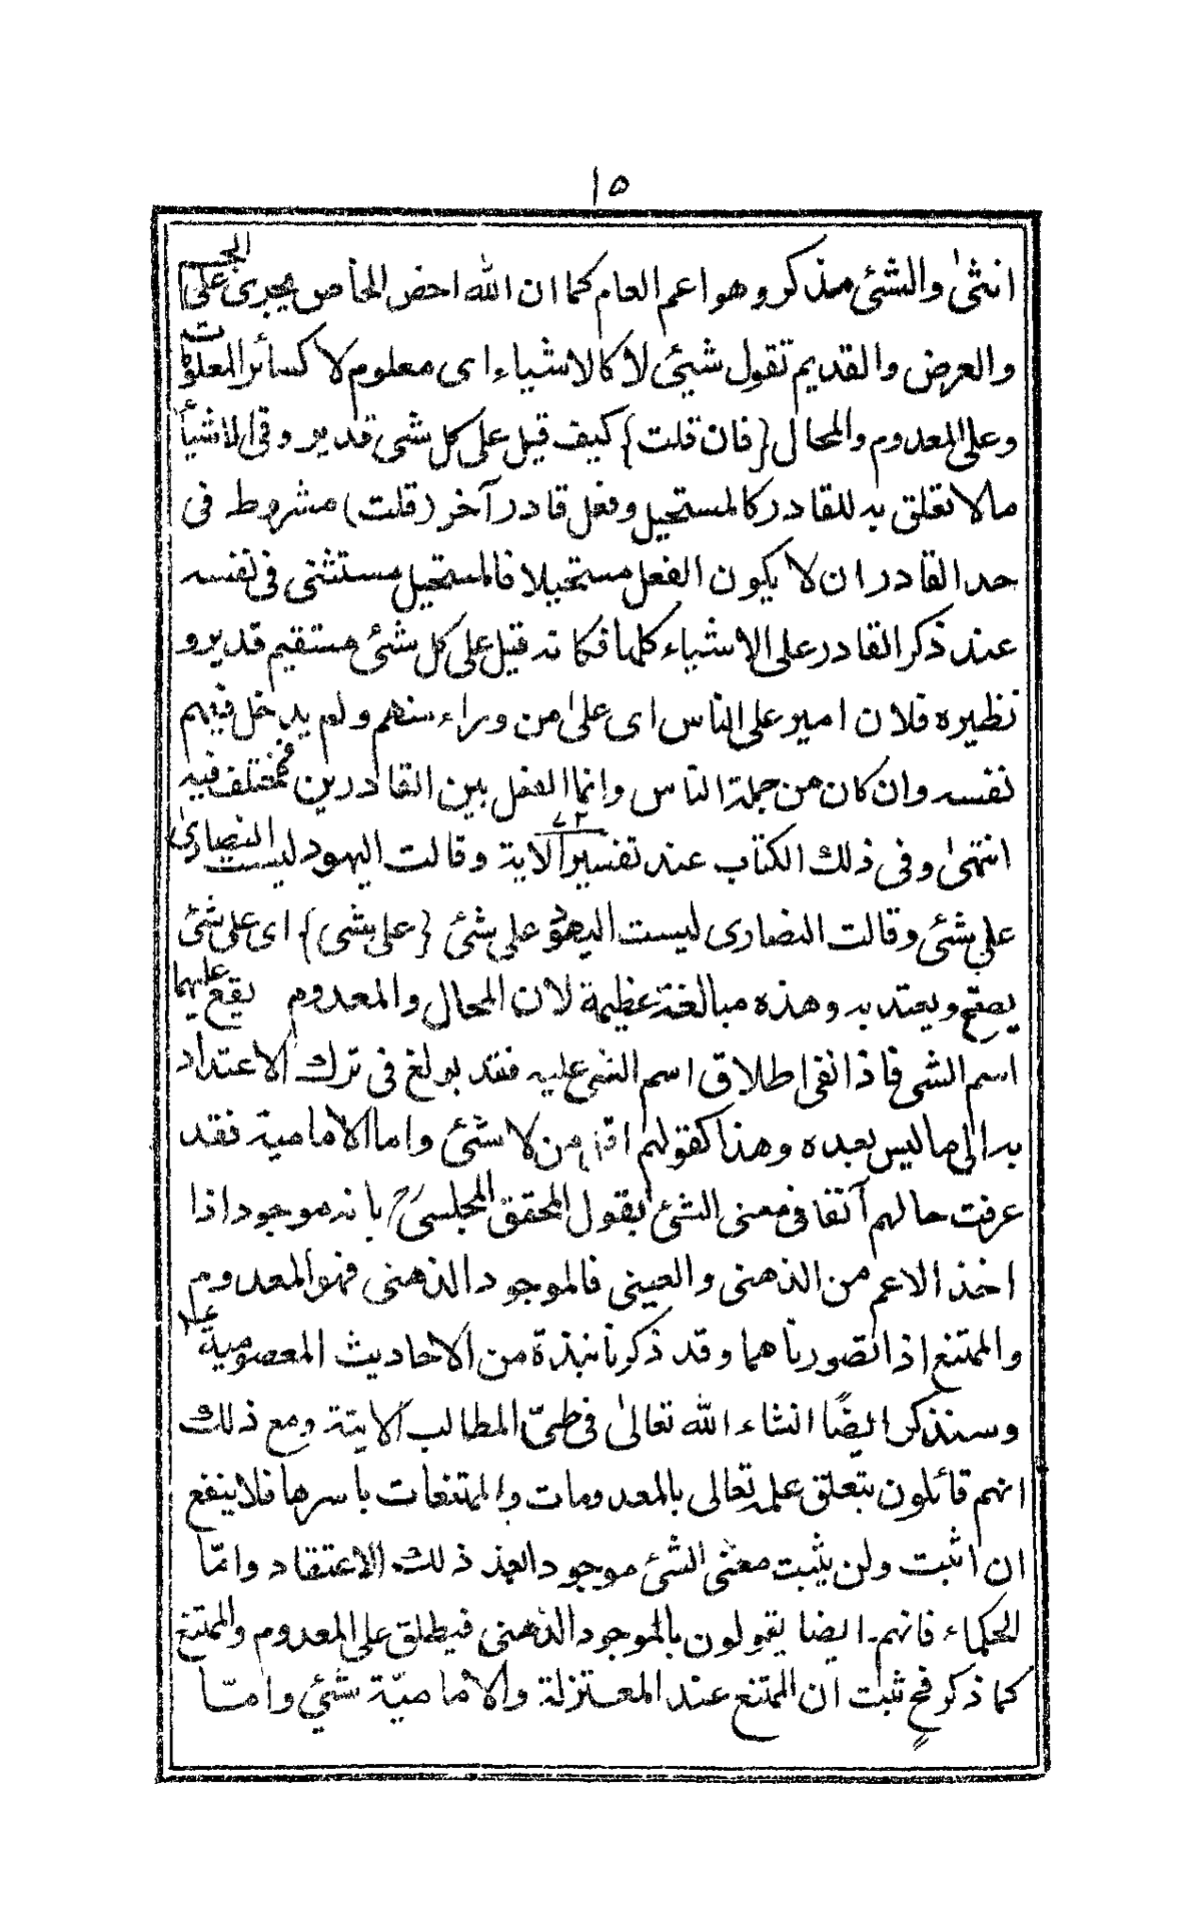 ١٥
انثىٰ والشئ مذكر وهو اعم العام كما ان الله اخص الخاص يجرى على الجسم
والعرض والقديم تقول شيئ لا كالاشياء اى معلوم لا كسائر المعلومات
وعلى المعدوم والمحال {فان قلت} كيف قيل على كل شى قدير وفى الاشياء
مالا تعلق به للقادر كالمستحيل وفعل قادر آخر (قلت) مشروط فى
حد القادر ان لا يكون الفعل مستحيلا فالمستحيل مستثنى فى نفسه
عند ذكر القادر على الاشياء كلها فكانه قيل على كل شئ مستقيم قدير و
نظيره فلان امير على الناس اى علىٰ من وراءه منهم ولم يدخل فيهم
نفسه وان كان من جملة الناس واما الفعل بين القادرين فمختلف فيه
انتهىٰ وفى ذلك الكتاب عند تفسير الاية وقالت اليهود ليست النصارىٰ
على شئ وقالت النصارى ليست اليهود على شئ {على شى} اى على شئ
يصح ويعتد به وهذه مبالغة عظيمة لان المحال والمعدوم يقع عليهما
اسم الشى فاذا نفى اطلاق اسم الشى عليه فقد بولغ فى ترك الاعتداد
به الى ما ليس بعده وهذا كقولهم اقل من لا شئ واما الامامية فقد
عرفت حالهم آنفا فى معنى الشئ بقول المحقق المجلسى بانه موجود اذا
اخذ الاعم من الذهنى والعينى فالموجود الذهنى فهو المعدوم
والممتنع اذا تصورناهما وقد ذكرنا نبذة من الاحاديث المعصومية
وسنذكر ايضًا انشاء الله تعالىٰ فى طىّ المطالب الاٰتية ومع ذلك
انهم قائلون بتعلق علمه تعالى بالمعدومات والممتنعات باسرها فلا ينفع
ان اثبت ولن يثبت معنى الشئ موجود العهد ذلك الاعتقاد وامّا
الحكماء فانهم ايضا يقولون بالموجود الذهنى فيطلق على المعدوم والممتنع
كما ذكر فح ثبت ان الممتنع عند المعتزلة والامامية شئي وامّا